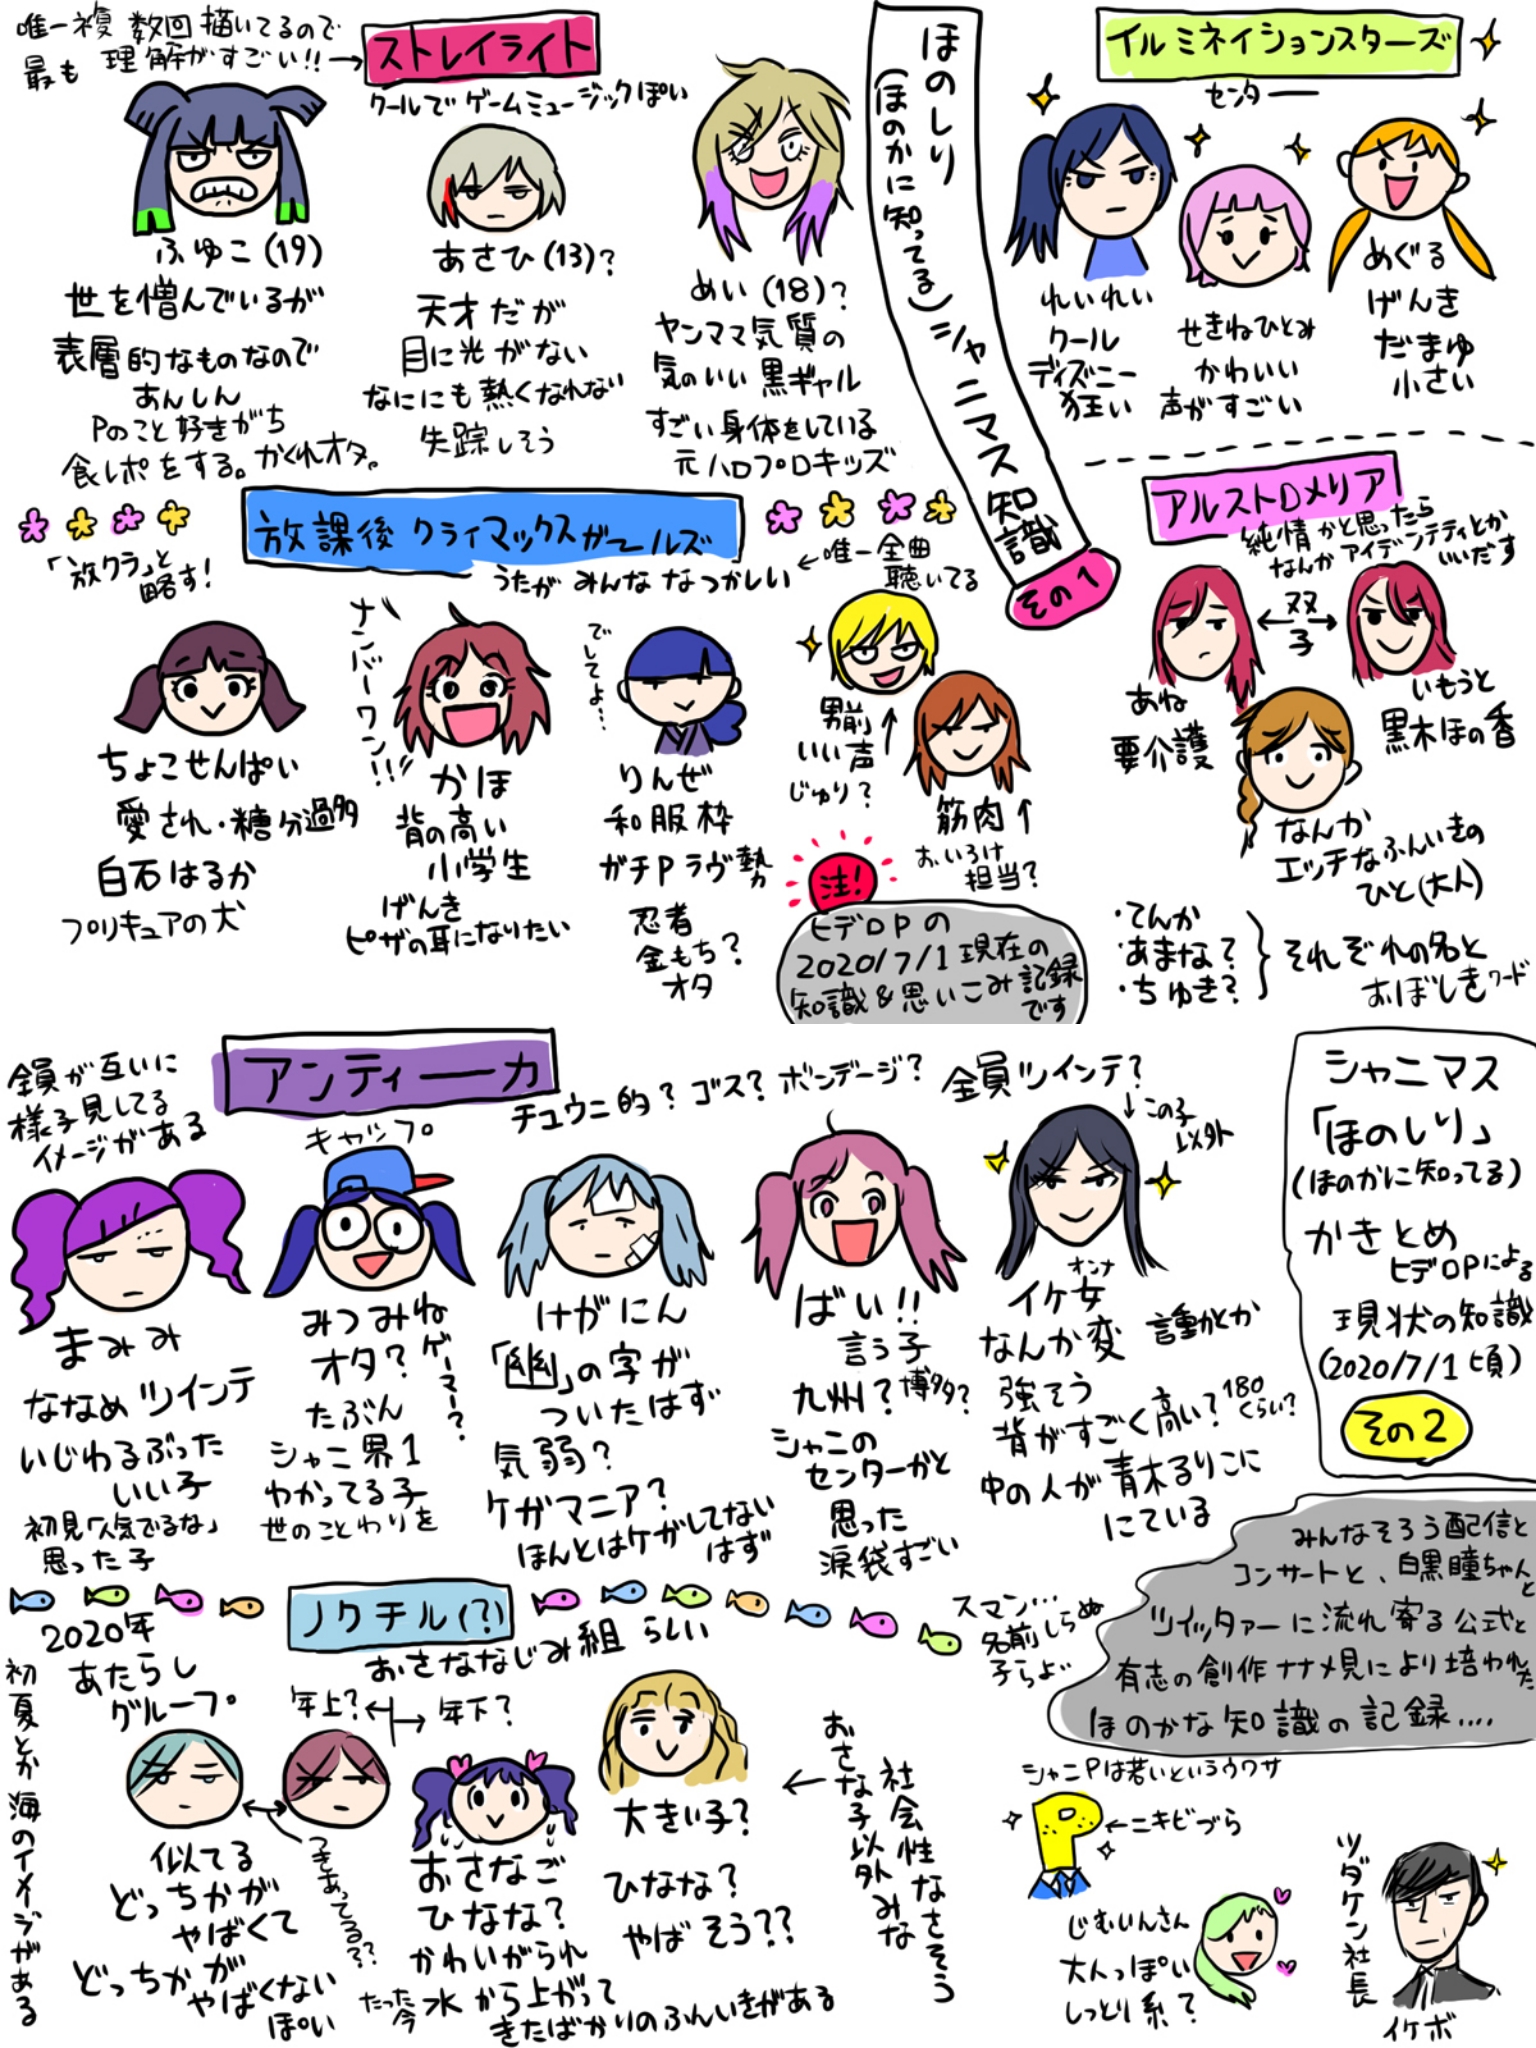 唯一複数回描いてるので
最も理解がすごい!!→
ストレイライト
クールでゲームミュージックぽい
ふゆこ(19)
世を憎んでいるが
表層的なものなので
あんしん
Pのこと好きがち
食レポをする。かくれオタ。
あさひ(13)?
天才だが
目に光がない
なににも熱くなれない
失踪しそう
めい(18)?
ヤンママ気質の
気のいい黒ギャル
すごい身体をしている
元ハロプロキッズ
ほのしり
(ほのかに知ってる)シャニマス知識
その1
イルミネイションスターズ
センター
れいれい
クール
ディズニー
狂い
せきねひとみ
かわいい
声がすごい
めぐる
げんき
だまゆ
小さい
放課後クライマックスガールズ
「放クラ」と
略す!
うたがみんななつかしい
←唯一全曲
聴いてる
ちょこせんぱい
愛され・糖分過多
白石はるか
プリキュアの犬
ナンバーワン!!!
かほ
背の高い
小学生
げんき
ピザの耳になりたい
でしてよ…
りんぜ
和服枠
ガチPラヴ勢
忍者
金もち?
オタ
男前
いい声↑
じゅり?
筋肉↑
おいろけ
担当?
注!
ヒデロPの
2020/7/1現在の
知識&思いこみ記録
です
アルストロメリア
純情かと思ったら
なんかアイデンティティとか
いいだす
←双子→
あね
要介護
いもうと
黒木ほの香
なんか
エッチなふんいきの
ひと(大人)
・てんか
・あまな?
・ちゆき?
それぞれの名と
おぼしきワード
アンティーカ
全員が互いに
様子見してる
イメージがある
チュウニ的?ゴス?ボンデージ?
全員ツインテ?
↓この子
以外
まみみ
ななめツインテ
いじわるぶった
いい子
初見「人気でるな」
思った子
キャップ
みつみね
オタ?
ゲーマー?
たぶん
シャニ界1
わかってる子
世のことわりを
けがにん
「幽」の字が
ついたはず
気弱?
ケガマニア?
ほんとはケガしてない
はず
ばい!!
言う子
九州?博多?
シャニの
センターかと
思った
涙袋すごい
イケ女
オンナ
なんか変
言動がとか
強そう
背がすごく高い?180
くらい?
中の人が青木るりこに
にている
シャニマス
「ほのしり」
(ほのかに知ってる)
かきとめ
ヒデロPによる
現状の知識
(2020/7/1頃)
その2
みんなそろう配信と
コンサートと、白黒瞳ちゃんと
ツイッタァーに流れ寄る公式と
有志の創作ナナメ見により培われた
ほのかな知識の記録….
ノクチル(?)
おさななじみ組らしい
2020年
あたらし
グループ
初夏とか海のイメージがある
スマン…
名前しらぬ
子らよ…
年上?←
→年下?
似てる
どっちかが
やばくて
どっちかが
やばくない
ぽい
つきあってる??
おさなご
ひなな?
かわいがられ
たった今水から上がって
きたばかりのふんいきがある
大きい子?
ひなな?
やばそう??
←おさな子以外みな
社会性なさそう
シャニPは若いというウワサ
P
←ニキビづら
じむいんさん
大人っぽい
しっとり系?
ツダケン社長
イケボ